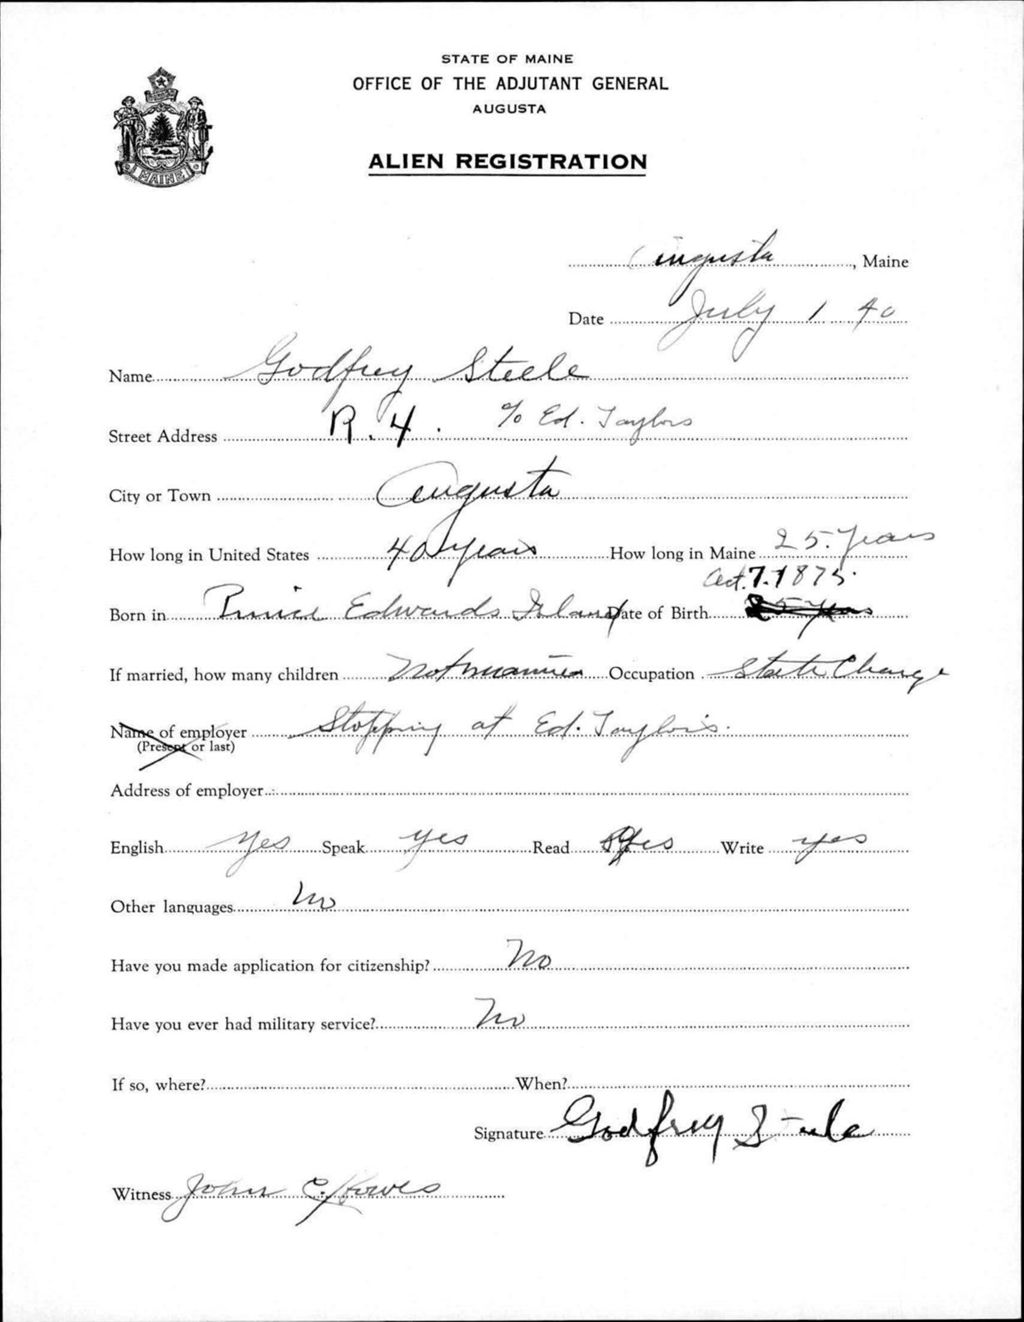 STATE OF MAINE
OFFICE OF THE ADJUTANT GENERAL
AUGUSTA
MAINE
ALIEN REGISTRATION
Augusta, Maine
Date July 1 40
Name Godfrey Steele
Street Address R. 4. c/o Ed. Taylors
City or Town Augusta
How long in United States 40 years How long in Maine 25. Years
Oct. 7. 1875.
Born in Prince Edwards Island Date of Birth 25 yrs
If married, how many children Not married Occupation State Charge
Name of employer Stopping at Ed. Taylor's.
(Present or last)
Address of employer
English Yes Speak yes Read yes Write yes
Other languages No
Have you made application for citizenship? No
Have you ever had military service? No
If so, where? When?
Signature Godfrey Steele
Witness John C. Howes